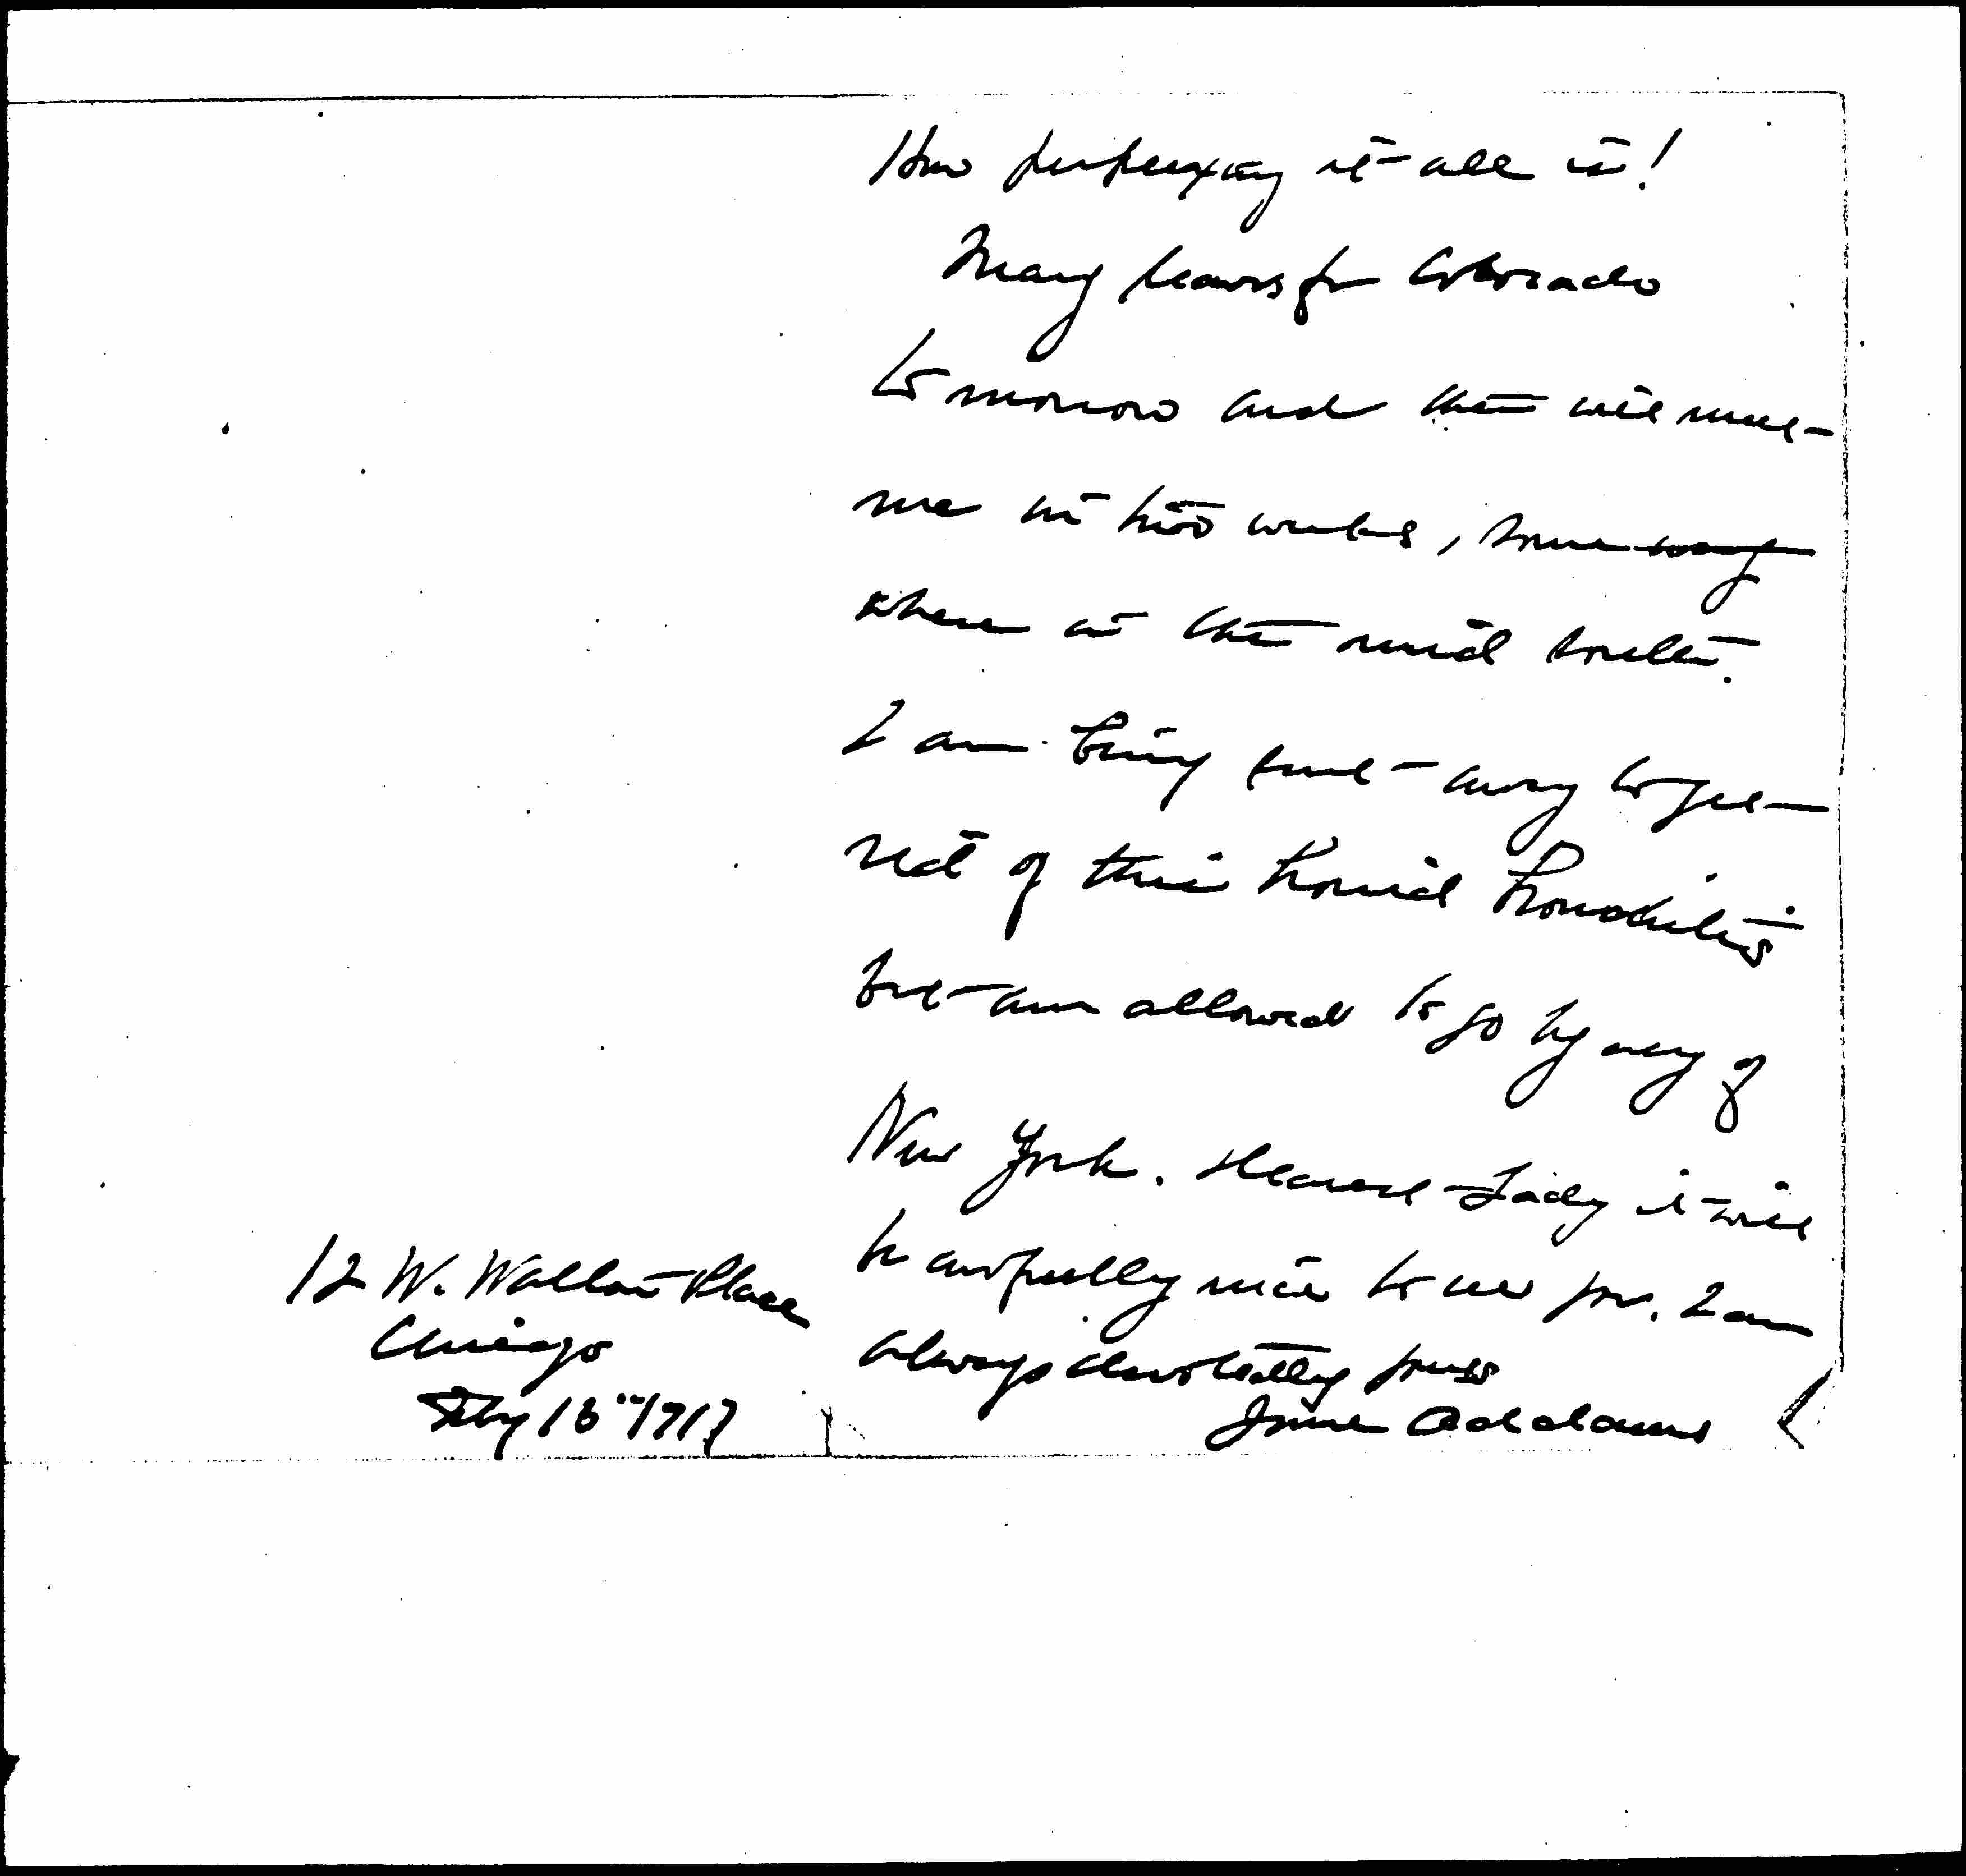 How perplexing it all is!
Mary leaves for Colorado
to morrow and then will meet
me in two weeks, some way
where in the mid south.
I am being sent away to get
rid of this horrid bronchitis
but am allowed to go by way of
New York. Dearest Lady it will
be awfully nice to see you. I am
always devotedly yours
Jane Addams
12 W. Walton Place
Chicago
Feby 1917